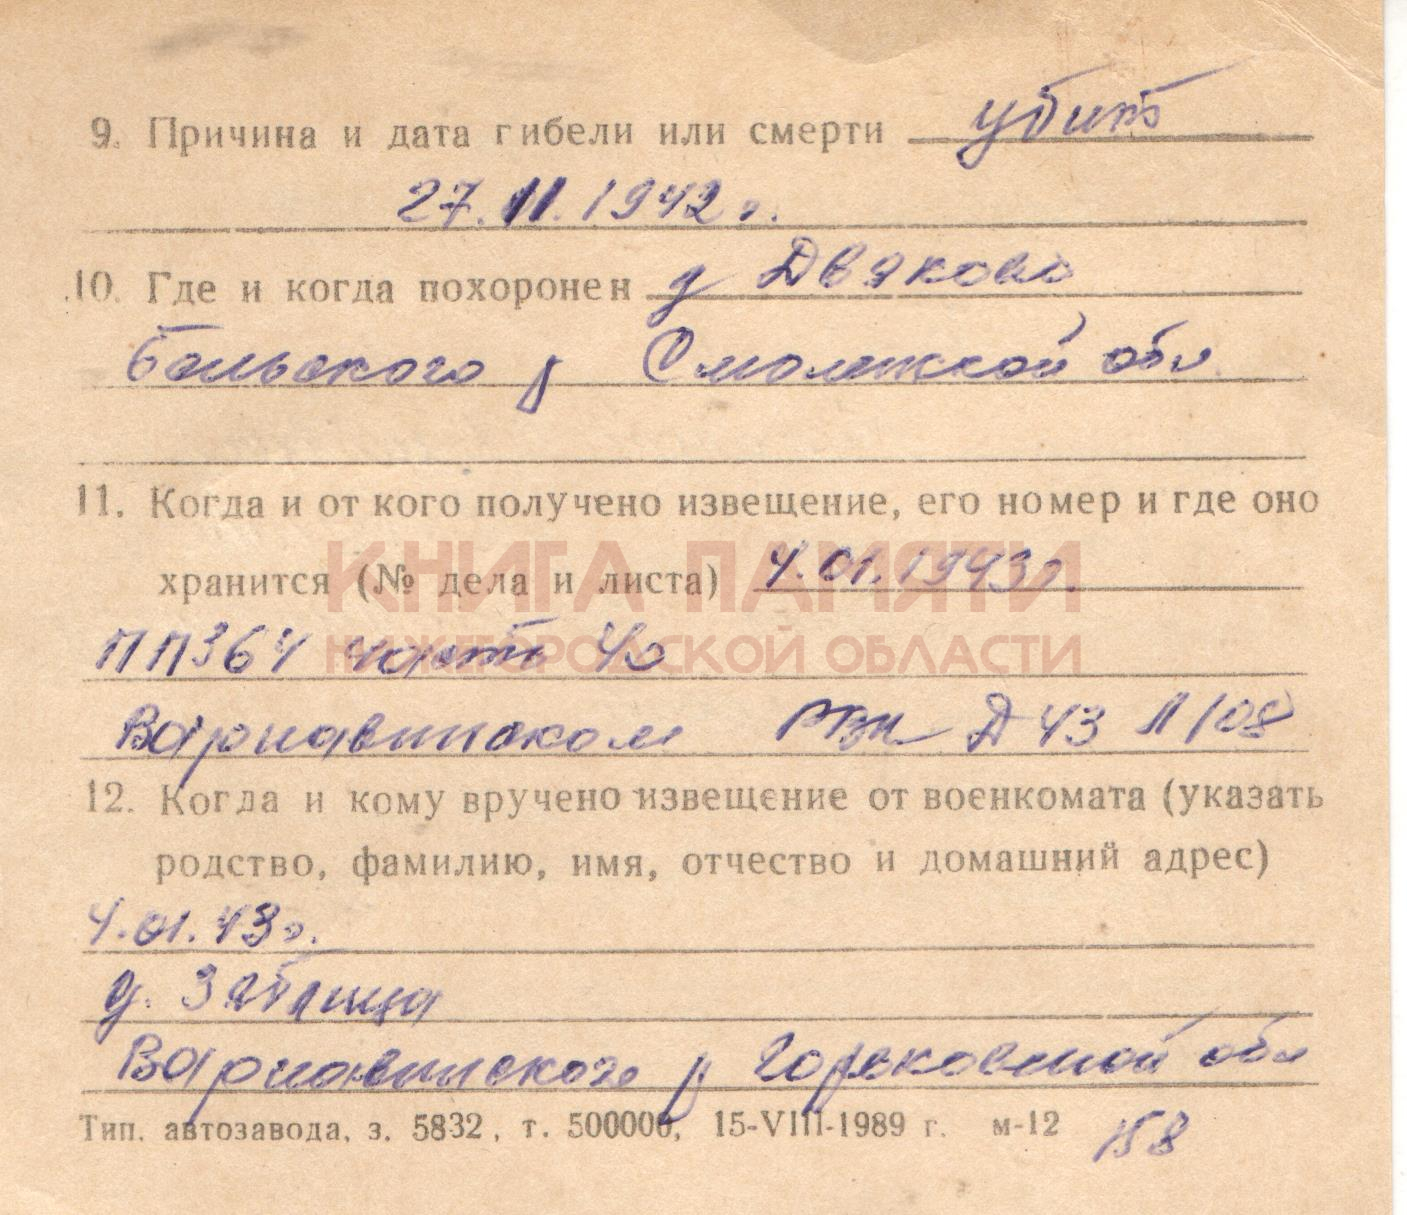 9. Причина и дата гибели или смерти убит
27.11.1942 г.
10. Где и когда похоронен д Двяково
Бельского р Смоленской обл
11. Когда и от кого получено извещение, его номер и где оно
хранится (№ дела и листа) 4.01.1943г.
КНИГА ПАМЯТИ
НИЖЕГОРОДСКОЙ ОБЛАСТИ
ПП364 часть 40
Варнавинском РВК Д 43 Л 108
12. Когда и кому вручено извещение от военкомата (указать
родство, фамилию, имя, отчество и домашний адрес)
4.01.43г.
д.
Варнавинского р Горьковской обл
Тип. автозавода, з. 5832, т. 500000, 15-VIII-1989 г. м-12
158